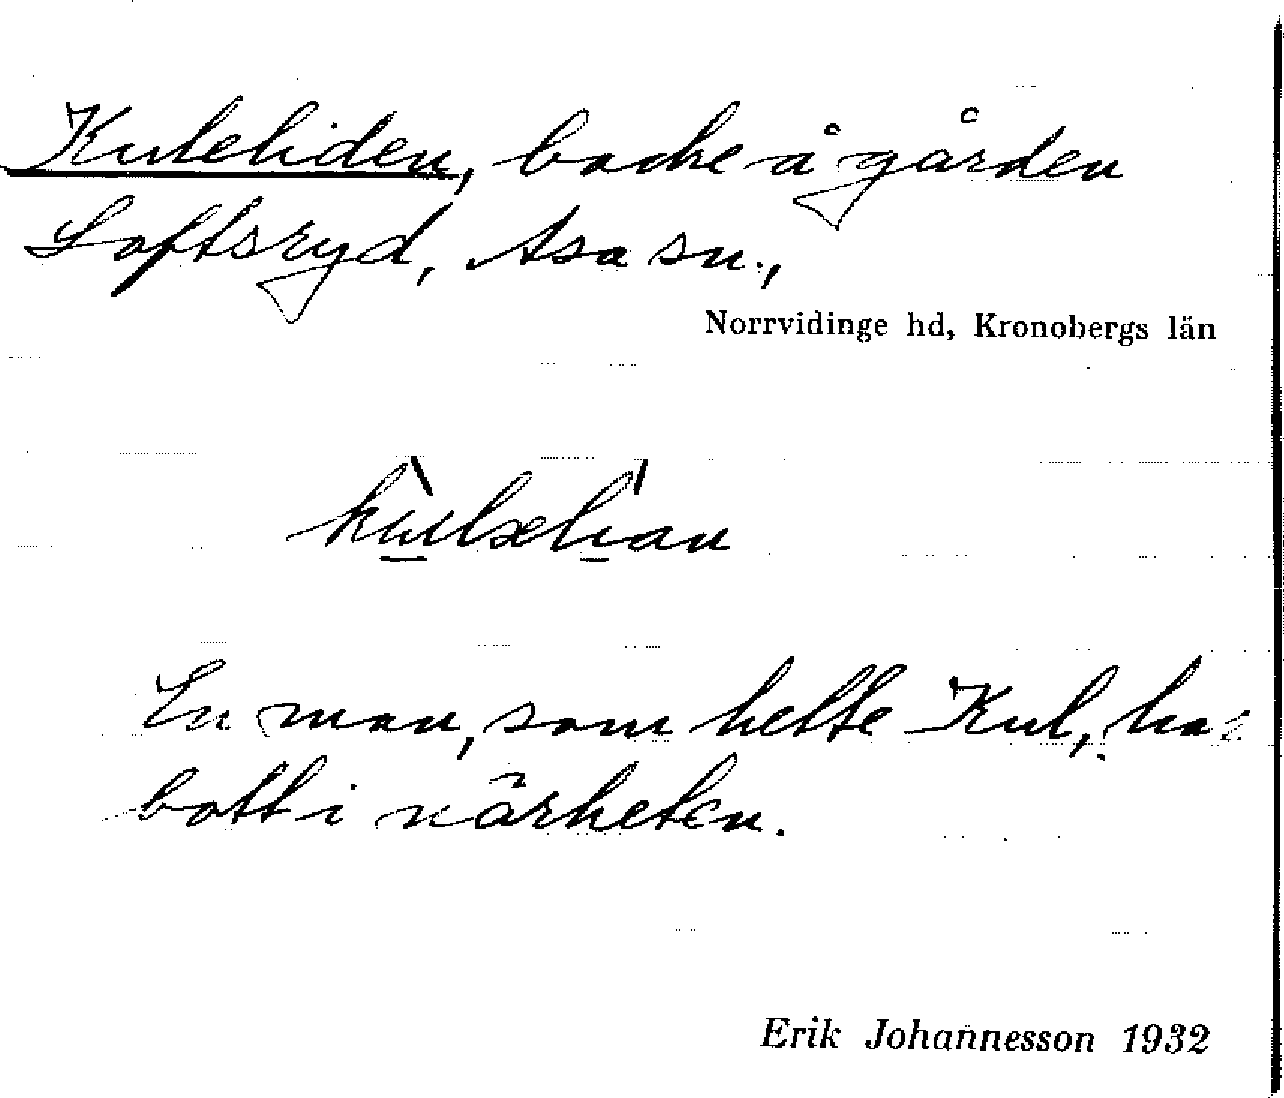 Kuleliden, backe å gården
Loftsryd, Asa sn.,
Norrvidinge hd, Kronobergs län
kùlælían
En man, som hette Kul, har
bott i närheten.
Erik Johannesson 1932